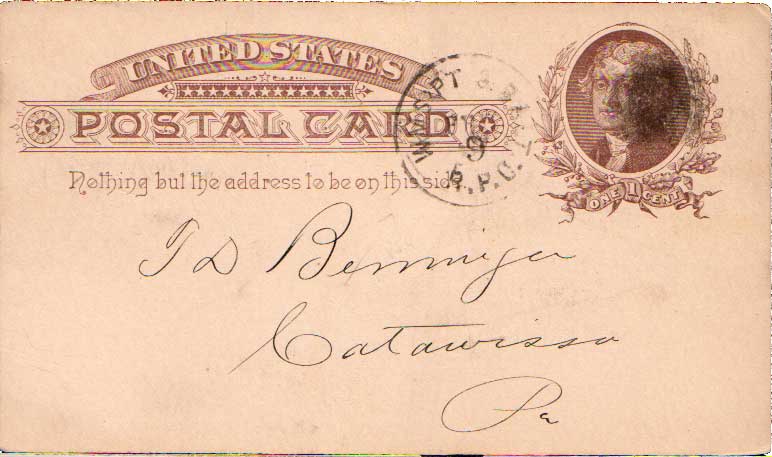 UNITED STATES
POSTAL CARD
Nothing but the address to be on this side.
WMSPT & BALT
9
R.P.O.
ONE 1 CENT
I D Berninger
Catawissa
Pa